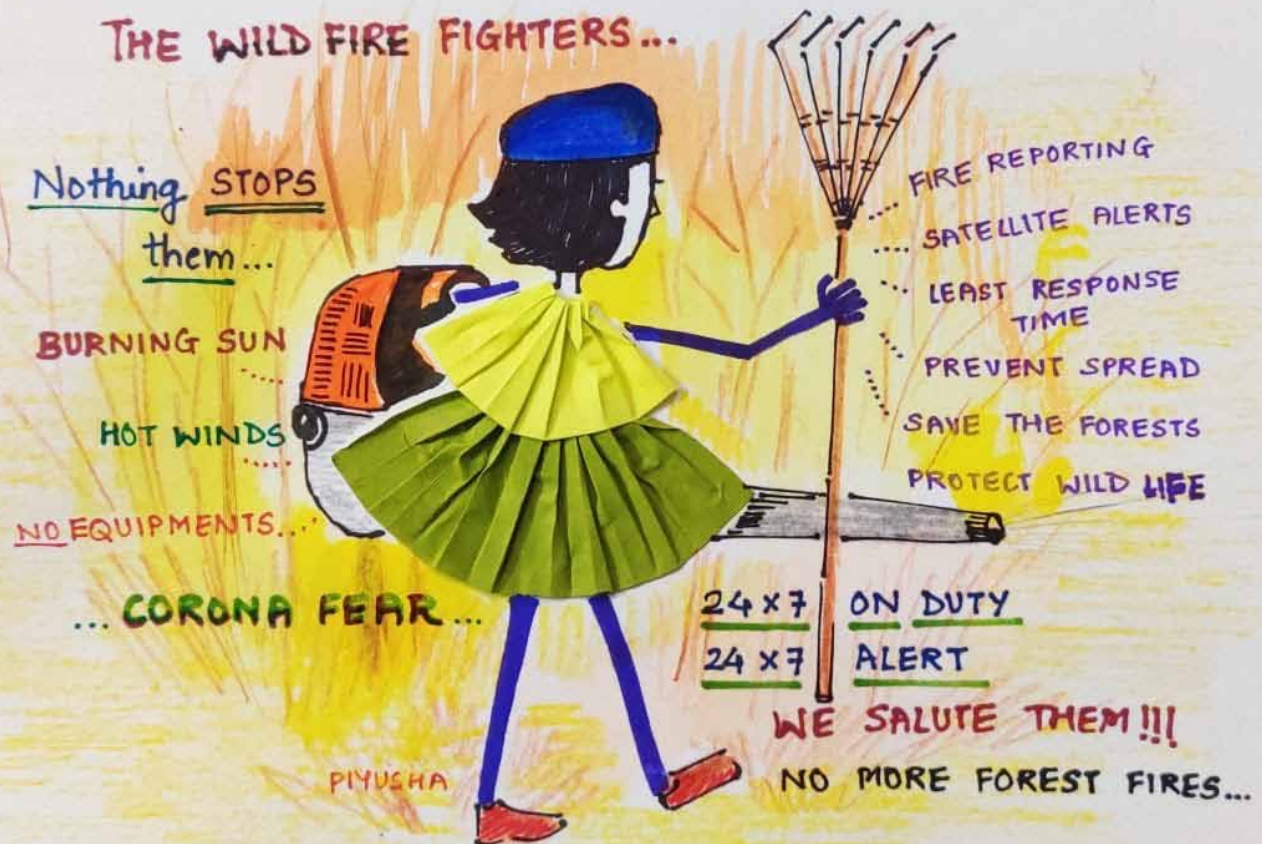 THE WILD FIRE FIGHTERS...
Nothing STOPS
them...
BURNING SUN
HOT WINDS
NO EQUIPMENTS...
...CORONA FEAR...
FIRE REPORTING
SATELLITE ALERTS
LEAST RESPONSE
TIME
PREVENT SPREAD
SAVE THE FORESTS
PROTECT WILD LIFE
24 x 7 ON DUTY
24 x 7 ALERT
WE SALUTE THEM!!!
NO MORE FOREST FIRES...
PIYUSHA